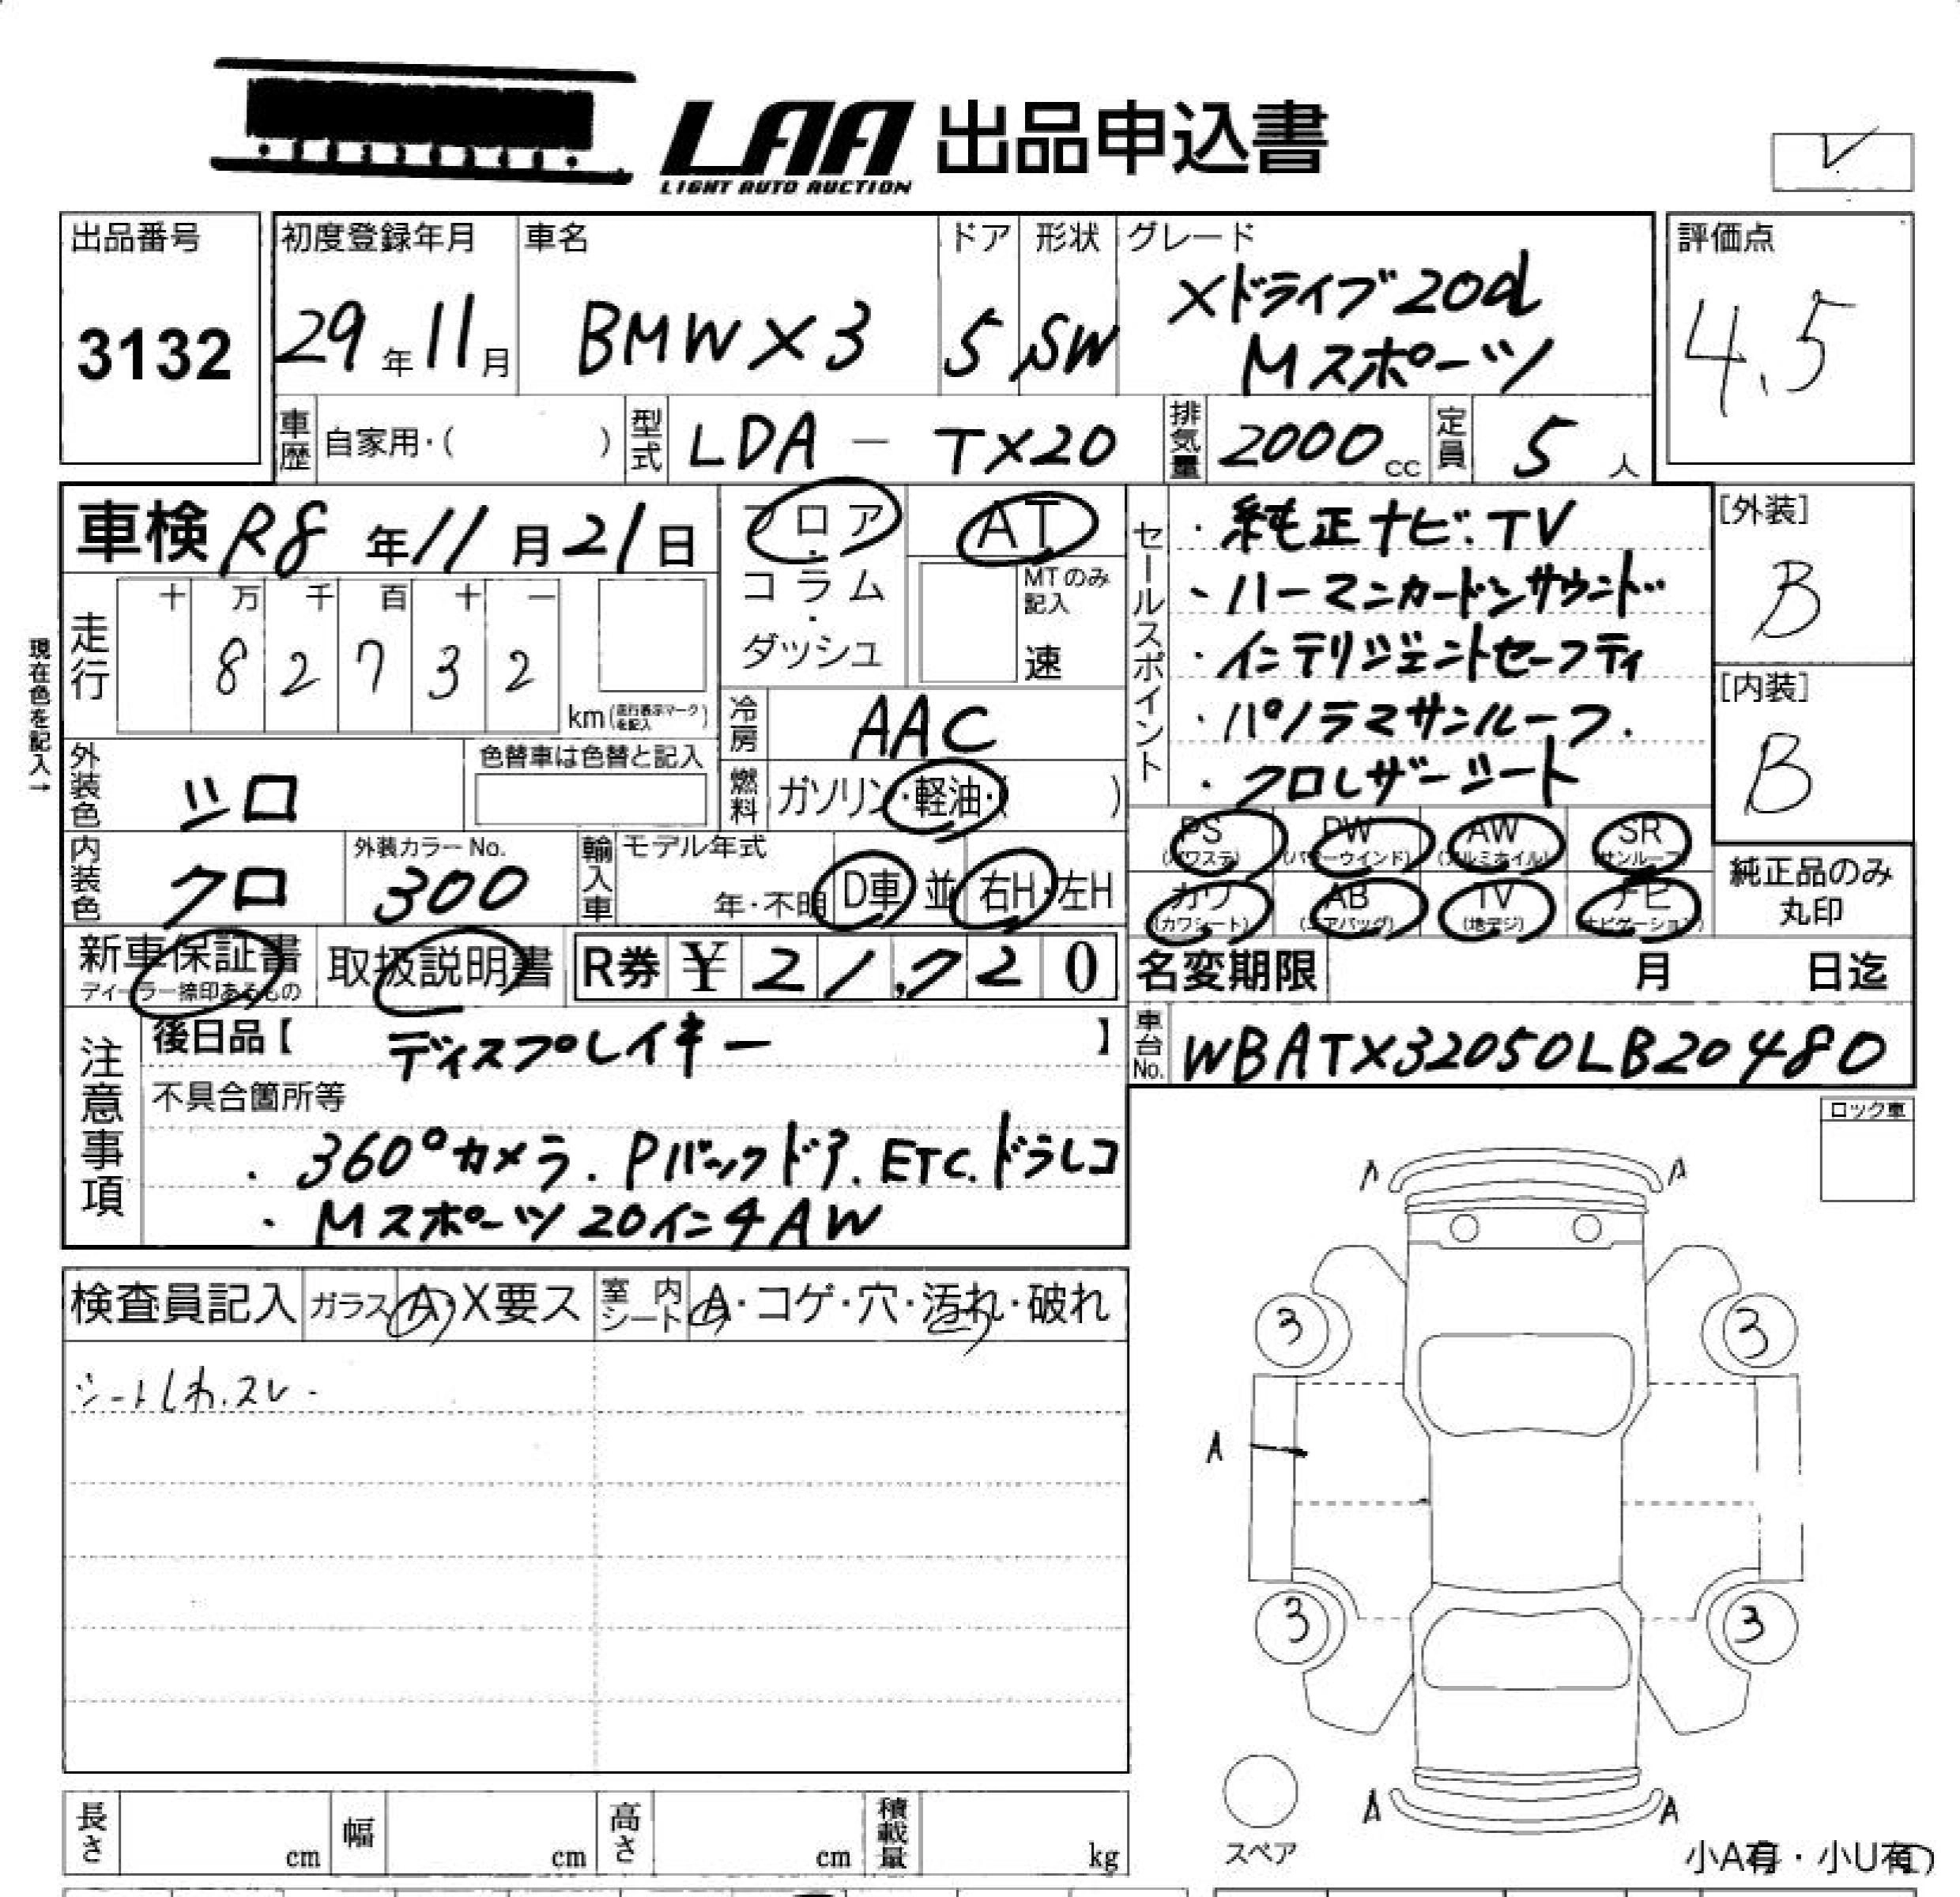 LAA 出品申込書
LIGHT AUTO AUCTION
出品番号
3132
初度登録年月
29年11月
車名
BMW X3
ドア
5
形状
SW
グレード
Xドライブ20d
Mスポーツ
評価点
4.5
車歴 自家用・( )
型式 LDA - TX20
排気量 2000cc
定員 5人
車検 R8年11月21日
フロア・コラム・ダッシュ
AT
MTのみ記入
速
走行 十 万 千 百 十 一
82732
km(走行表示マークを記入)
現在色を記入→
冷房 AAC
燃料 ガソリン・軽油・( )
外装色 シロ
色替車は色替と記入
内装色 クロ
外装カラーNo.
300
輸入車 モデル年式
年・不明 D車 並 右H・左H
セールスポイント
・純正ナビ.TV
・ハーマンカードンサウンド
・インテリジェントセーフティ
・パノラマサンルーフ.
・クロレザーシート
[外装]
B
[内装]
B
PS (パワステ) PW (パワーウインド) AW (アルミホイル) SR (サンルーフ)
カワ (カワシート) AB (エアバッグ) TV (地デジ) ナビ (ナビゲーション)
純正品のみ丸印
新車保証書
ディーラー捺印あるもの
取扱説明書
R券 ¥21,720
名変期限 月 日迄
車台No. WBATX32050LB20480
注意事項
後日品【 ディスプレイキー 】
不具合箇所等
・360°カメラ.Pバックドア.ETC.ドラレコ
・Mスポーツ20インチAW
ロック車
検査員記入 ガラス A・X要ス 室内シート A・コゲ・穴・汚れ・破れ
シートしわ.スレ.
A A
3 3
A
3 3
A A
スペア
小A有・小U有
長さ cm 幅 cm 高さ cm 積載量 kg